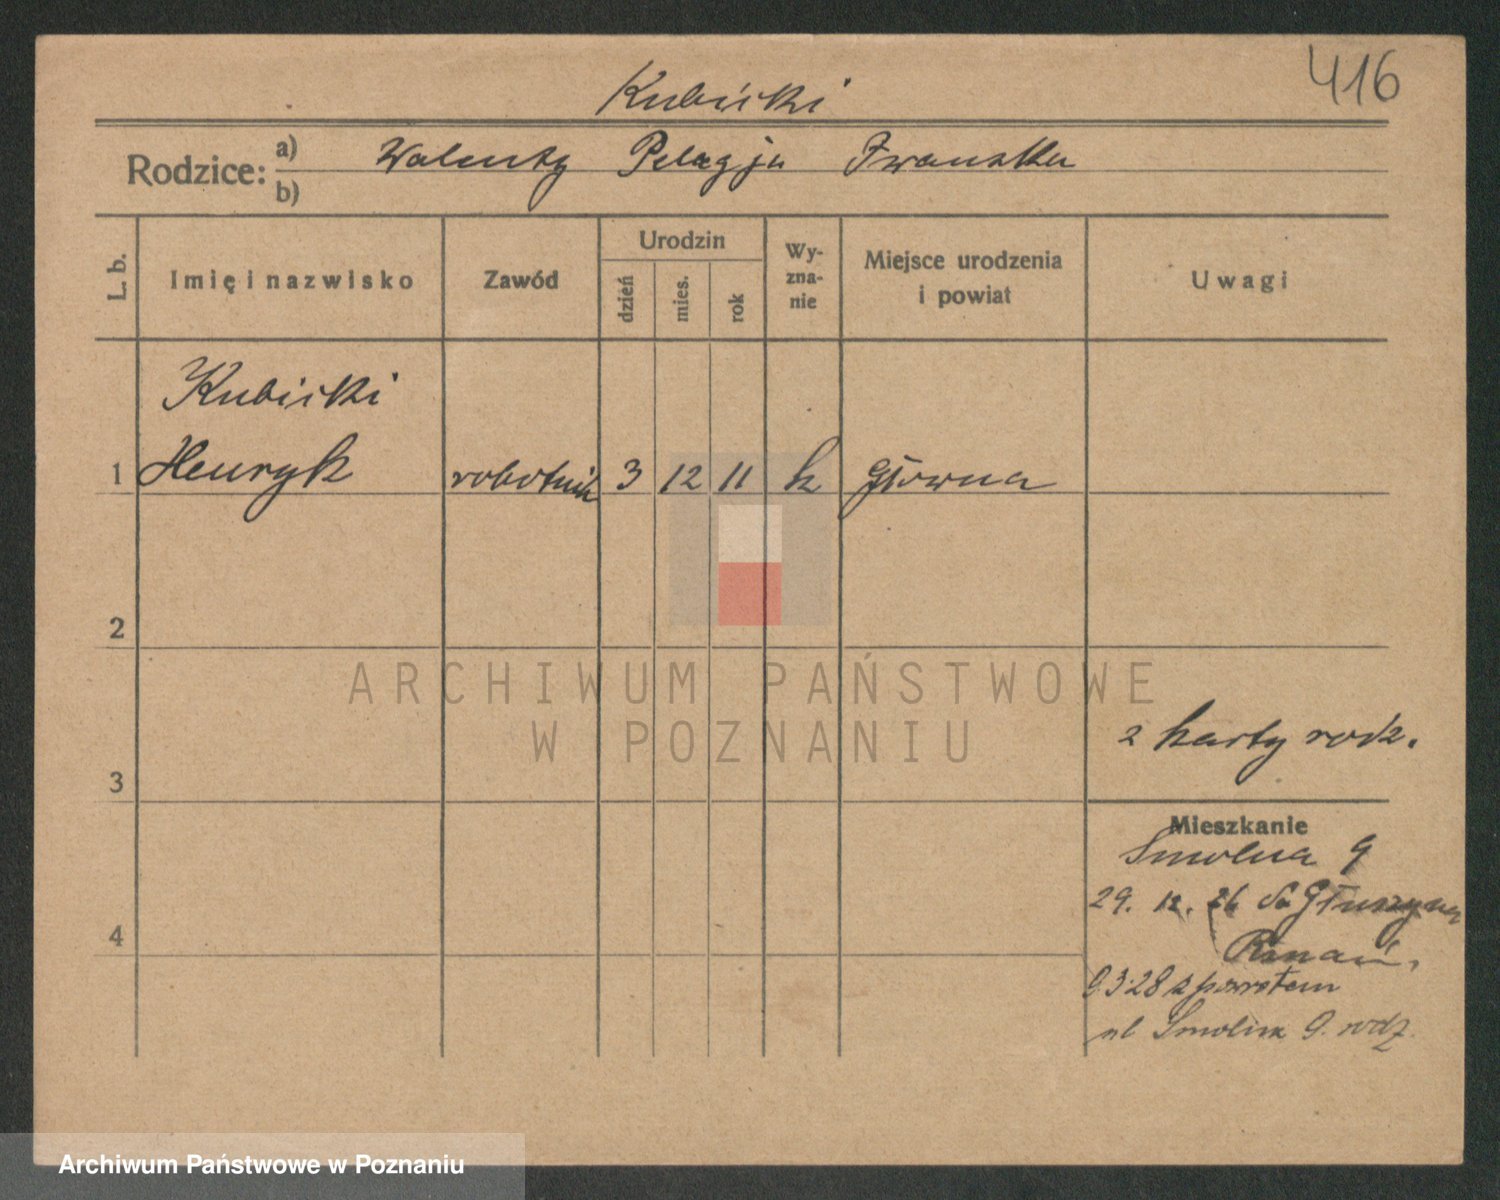 416
Kubicki
Rodzice: a) Walenty Pelagja Iwanska
b)
L. b.
Imię i nazwisko
Zawód
Urodzin
dzień
mies.
rok
Wy-
zna-
nie
Miejsce urodzenia
i powiat
Uwagi
Kubicki
1 Henryk robotnik 3 12 11 k Główna
2
ARCHIWUM PAŃSTWOWE
W POZNANIU
z karty rodz.
3
Mieszkanie
Smolna 9
29. 12. 26 do Głuszyna
4
Poznań.
9.3.28 z powrotem
ul Smolna 9. rodz.
Archiwum Państwowe w Poznaniu